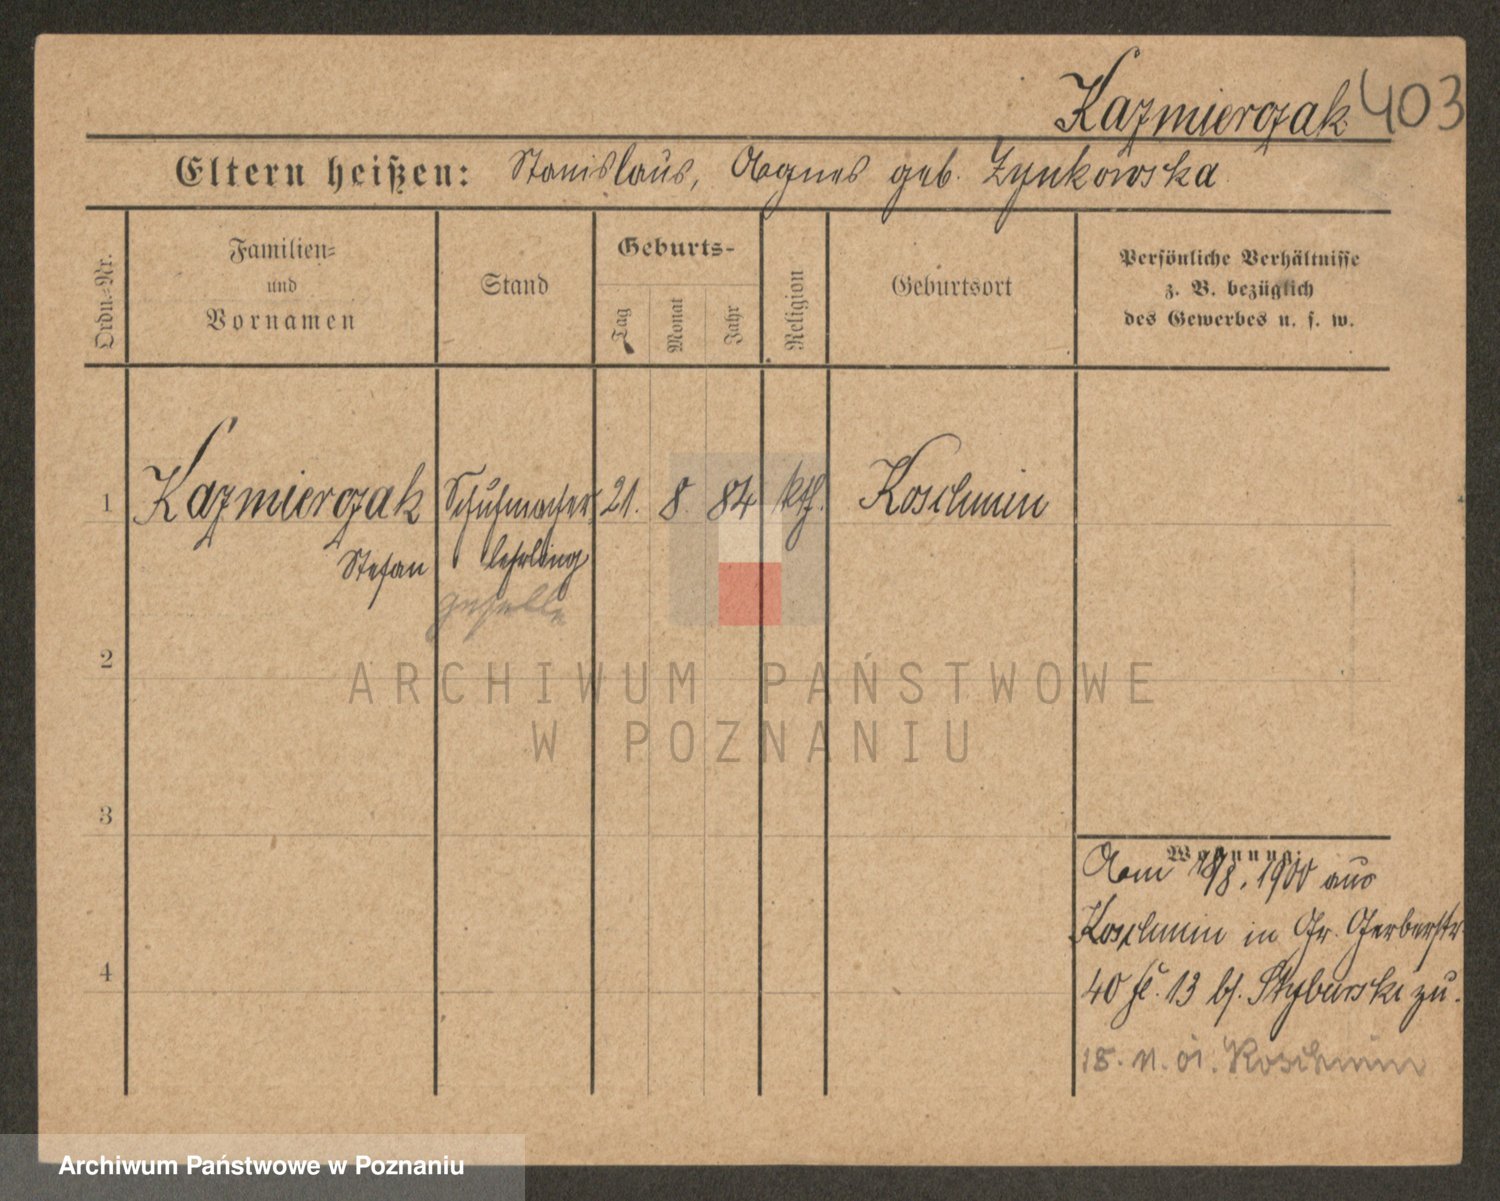 Kazmierczak 403
Eltern heißen: Stanislaus, Agnes geb. Zynkowska
Ordn.-Nr.
Familien-
und
Vornamen
Stand
Geburts-
Tag
Monat
Jahr
Religion
Geburtsort
Persönliche Verhältnisse
z. B. bezüglich
des Gewerbes u. s. w.
1 Kazmierczak Schuhmacher 21. 8. 84 kth. Koschmin
Stefan lehrling
geselle
2
ARCHIWUM PAŃSTWOWE
W POZNANIU
3
Wohnung:
Am /8. 1900 aus
Koschmin in Gr. Gerberstr.
40 13 bei zu.
18. 11. 01. Koschmin
4
Archiwum Państwowe w Poznaniu